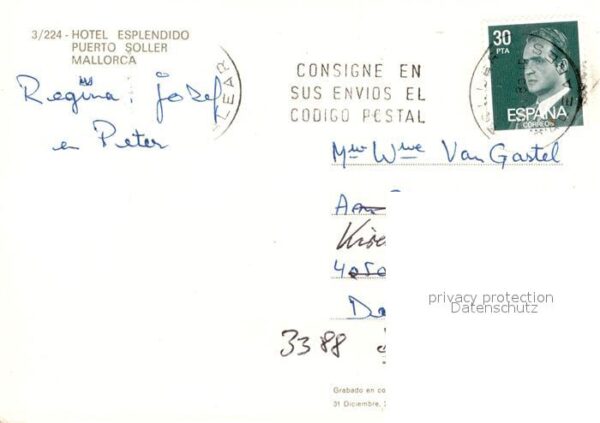 3/224 - HOTEL ESPLENDIDO
PUERTO SOLLER
MALLORCA
Regina, Josef
en Peter
LEAR
CONSIGNE EN
SUS ENVIOS EL
CODIGO POSTAL
30
PTA
ESPAÑA
CORREOS
Van Gastel
4050
3388
privacy protection
Datenschutz
Grabado en co
31 Diciembre,